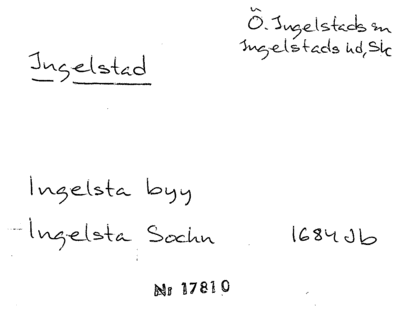 Ingelstad
Ö. Ingelstads sn
Ingelstads hd, Sk
Ingelsta byy
Ingelsta Sochn 1684 Jb
Nr 17810